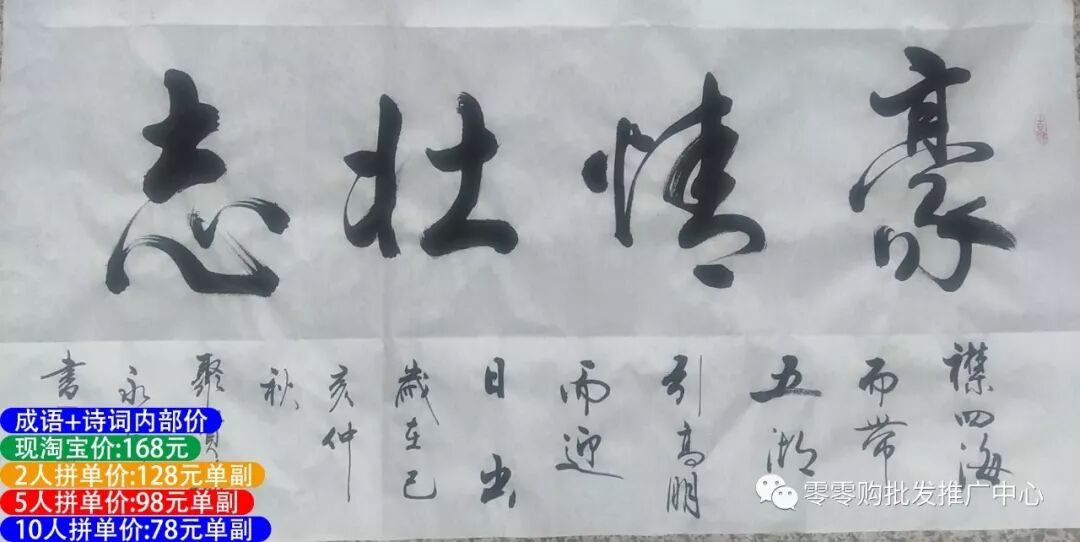 豪情壮志
襟四海
而带
五湖
引高朋
而迎
日出
歲在己
亥仲
秋
聚
永
書
成语+诗词内部价
现淘宝价:168元
2人拼单价:128元单副
5人拼单价:98元单副
10人拼单价:78元单副
零零购批发推广中心